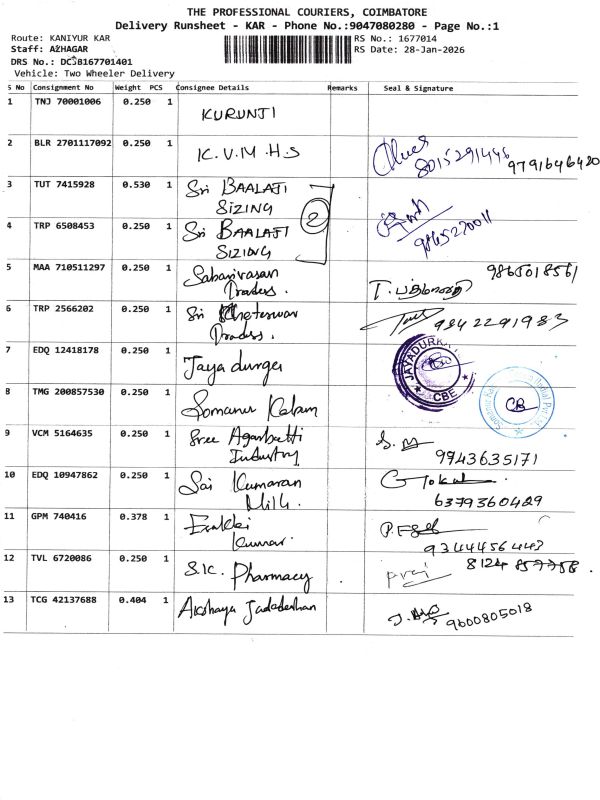 THE PROFESSIONAL COURIERS, COIMBATORE
Delivery Runsheet - KAR - Phone No.:9047080280 - Page No.:1
Route: KANIYUR KAR
RS No.: 1677014
Staff: AZHAGAR
RS Date: 28-Jan-2026
DRS No.: DCSB167701401
Vehicle: Two Wheeler Delivery
S No Consignment No Weight PCS Consignee Details Remarks Seal & Signature
1 TNJ 70001006 0.250 1 KURUNJI
2 BLR 2701117092 0.250 1 K.V.M.H.S
8015291446 9791646420
3 TUT 7415928 0.530 1 Sri BAALAJI
SIZING
2
4 TRP 6508453 0.250 1 Sri BAALAJI
SIZING
9865270011
5 MAA 710511297 0.250 1 Sabarivasan
Traders.
9865018561
6 TRP 2566202 0.250 1 Sri
Traders.
9842291983
7 EDQ 12418178 0.250 1 Jaya durga
JAYADURGA
CBE
8 TMG 200857530 0.250 1 Somanur Kalam
CB
9 VCM 5164635 0.250 1 Sree Agarbatti
Industry
9943635171
10 EDQ 10947862 0.250 1 Sai Kumaran
Mill.
Gokul
6379360429
11 GPM 740416 0.378 1
Kumar.
9344456443
12 TVL 6720086 0.250 1 S.K. Pharmacy
8124857758
13 TCG 42137688 0.404 1 Akshaya
9600805018